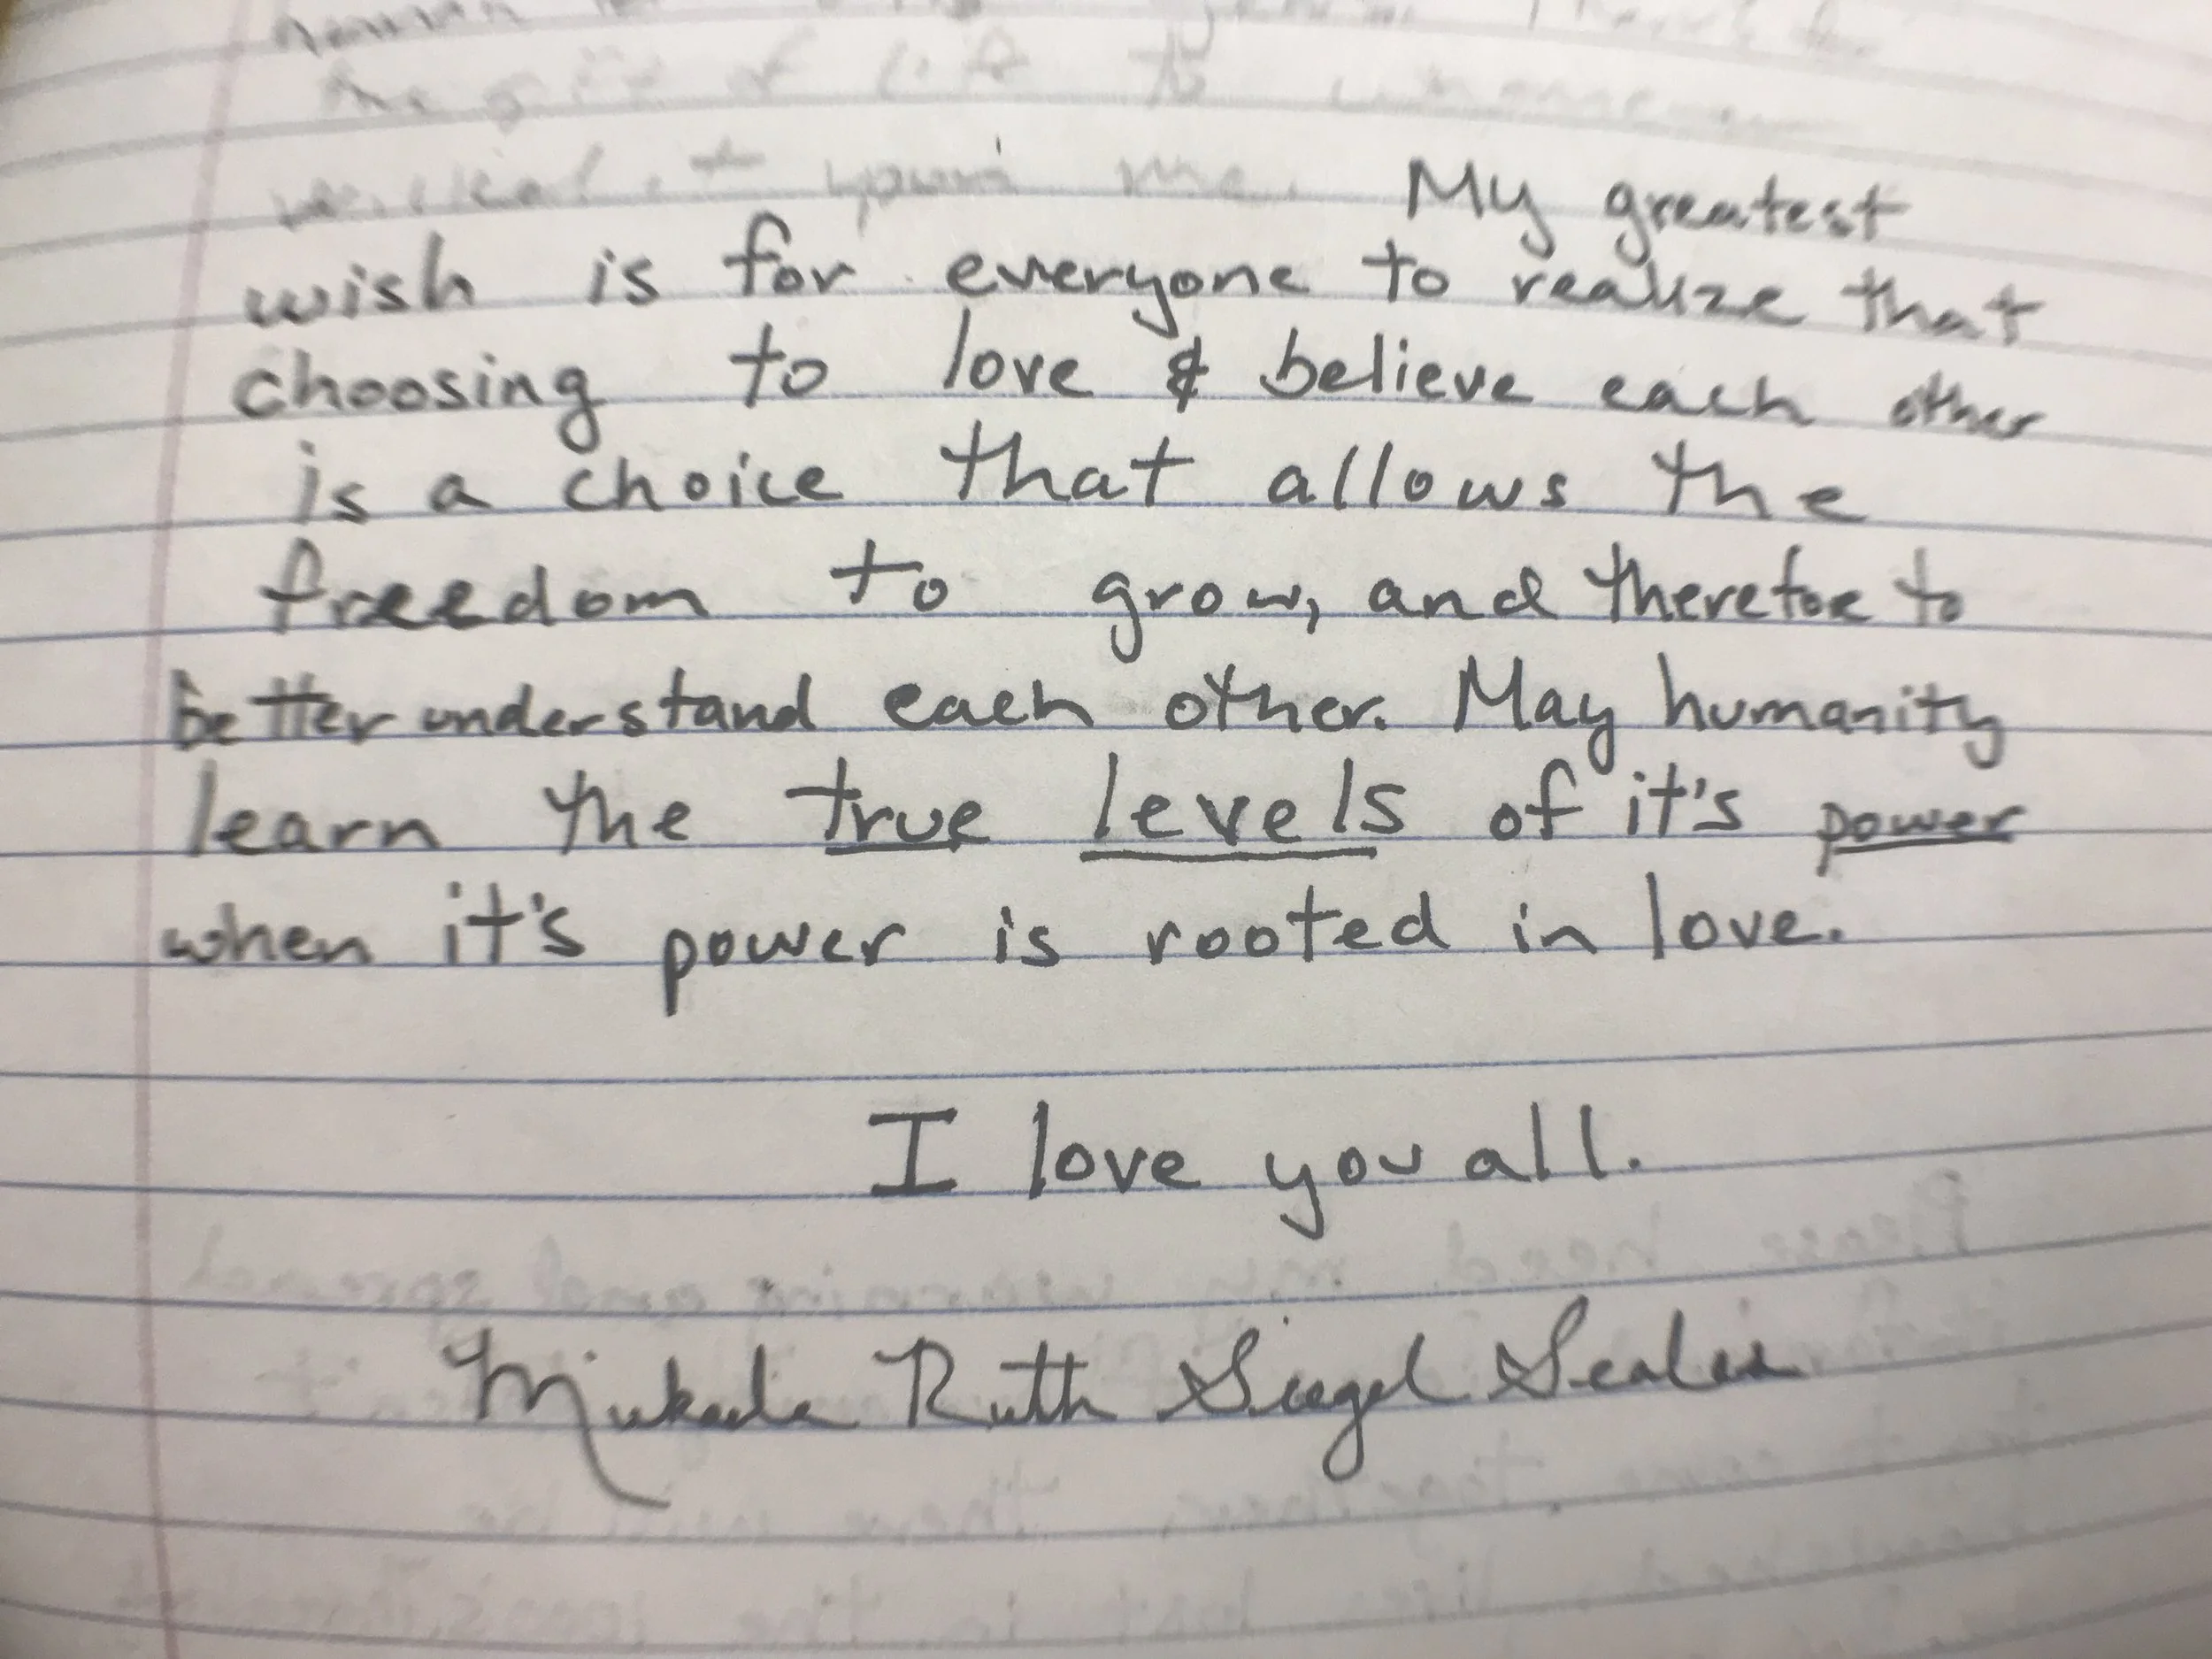 the gift of life to
My greatest
wish is for everyone to realize that
choosing to love & believe each other
is a choice that allows the
freedom to grow, and therefore to
better understand each other. May humanity
learn the true levels of it's power
when it's power is rooted in love.
I love you all.
Please heed my warning and spread
Ruth Siegel